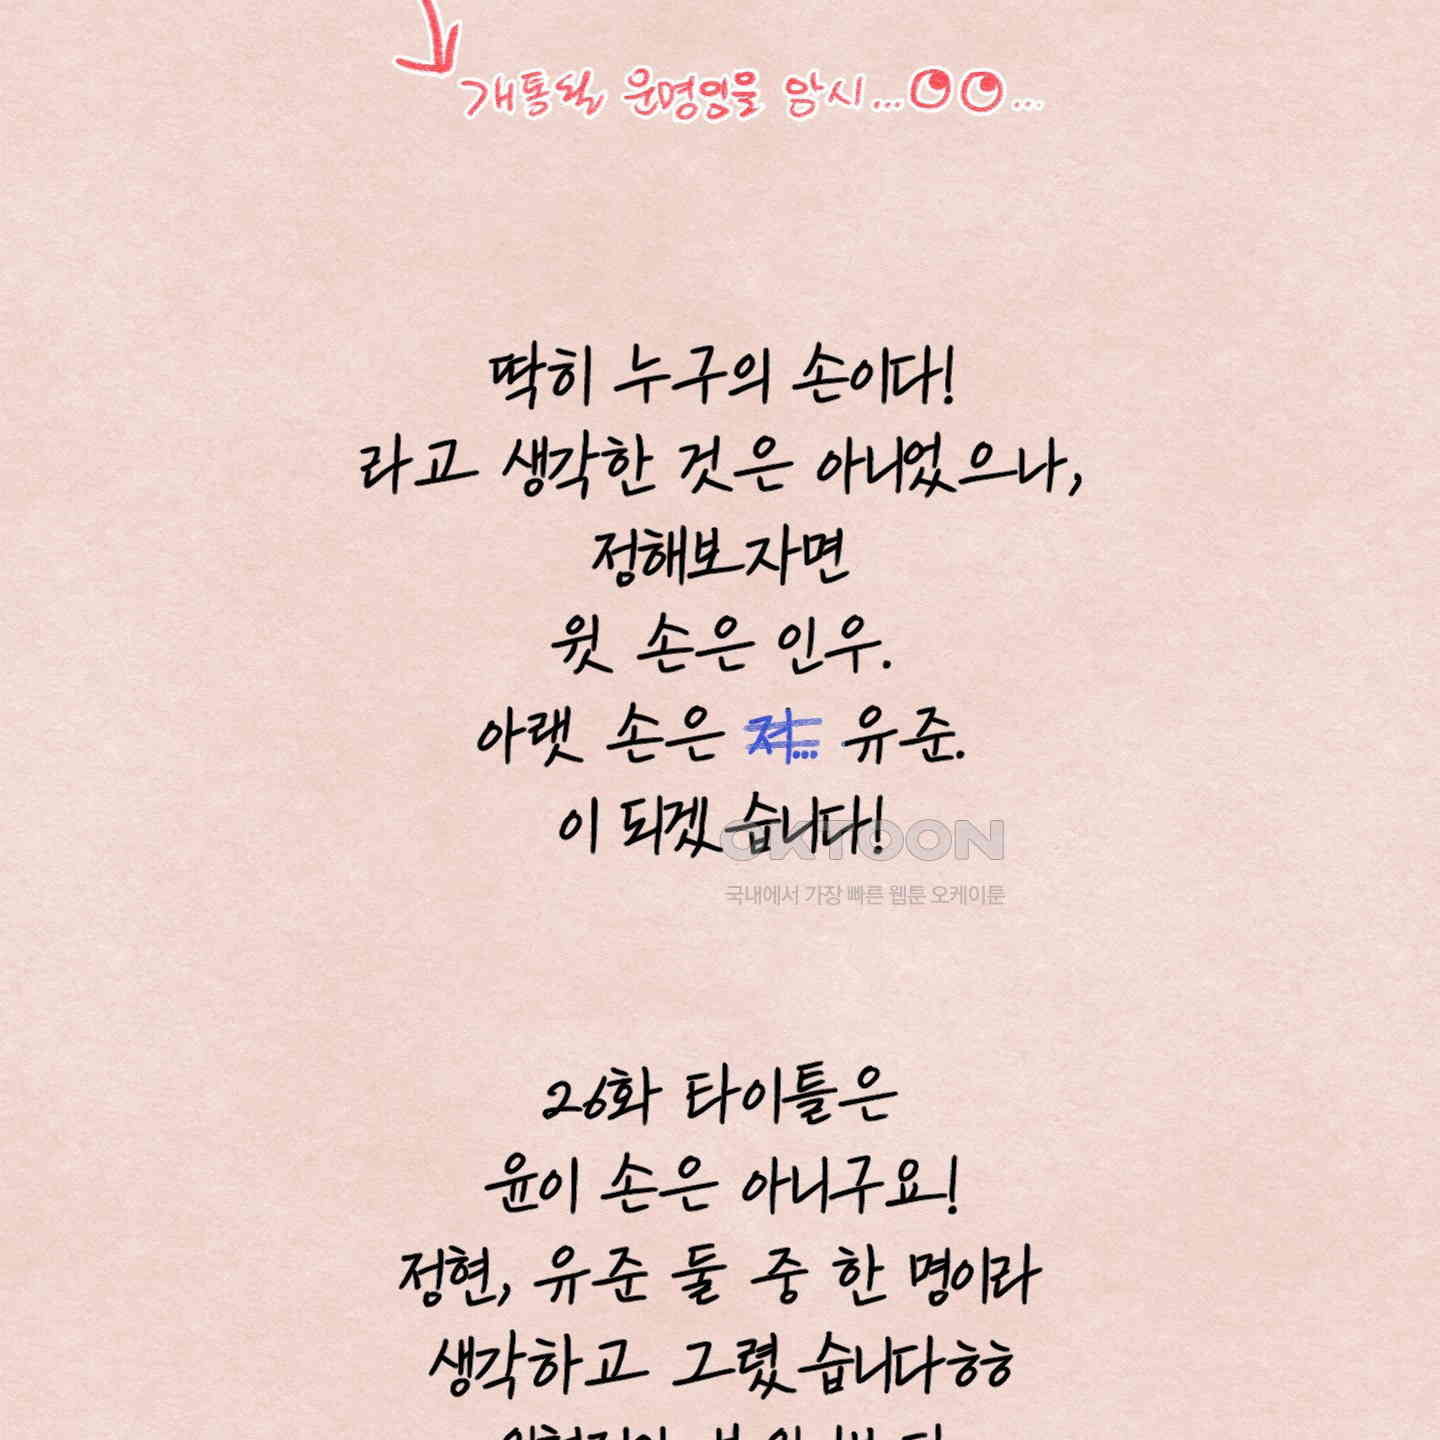 개통될 운명임을 암시...👀...
딱히 누구의 손이다!
라고 생각한 것은 아니었으나,
정해보자면
윗 손은 인우.
아랫 손은 저... 유준.
이 되겠습니다!
OKTOON
국내에서 가장 빠른 웹툰 오케이툰
26화 타이틀은
윤이 손은 아니구요!
정현, 유준 둘 중 한 명이라
생각하고 그렸습니다ㅎㅎ